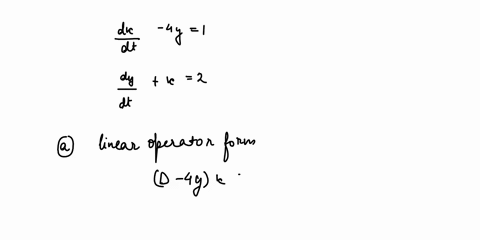 dx/dt - 4y = 1
dy/dt + x = 2
(a) linear operator form
(D - 4y) x